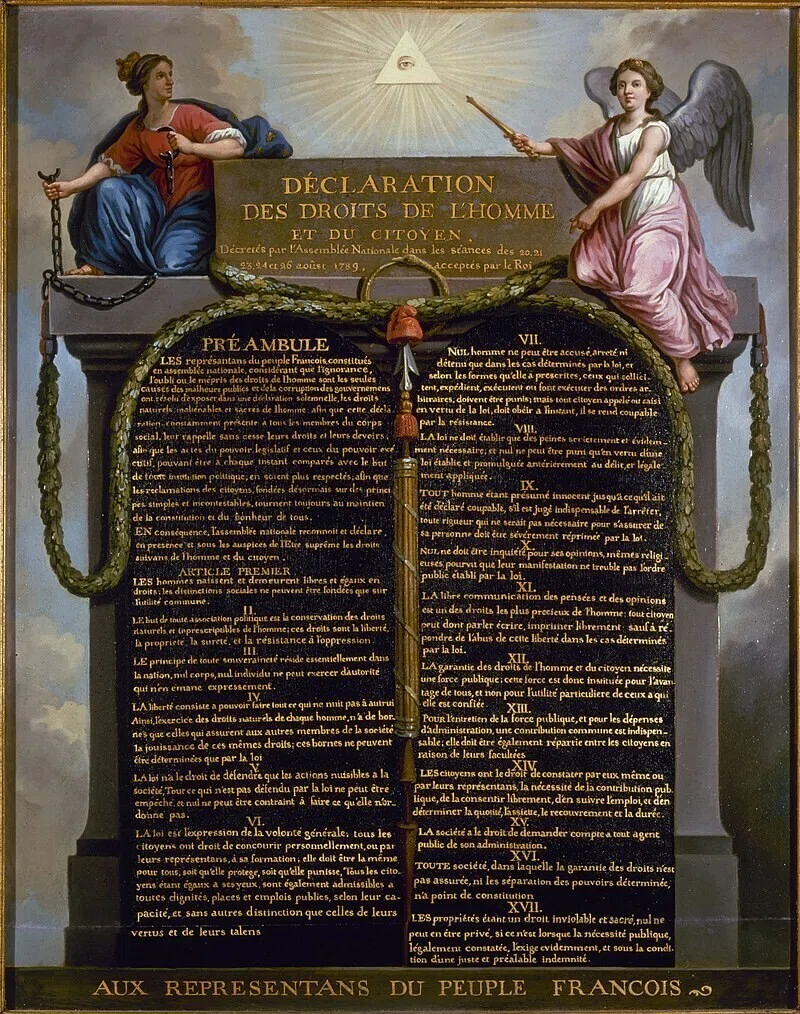 DÉCLARATION
DES DROITS DE L'HOMME
ET DU CITOYEN,
Décretés par l'Assemblée Nationale dans les séances des 20, 21
23, 24 et 26 aoûst 1789, acceptés par le Roi
PRÉAMBULE
LES représantans du peuple François, constitués
en assemblée nationale, considérant que l'ignorance,
l'oubli ou le mépris des droits de l'homme sont les seules
causes des malheurs publics et de la corruption des gouvernemens
ont résolu d'exposer dans une déclaration solemnelle, les droits
naturels, inaliénables et sacrés de l'homme; afin que cette décla
ration, constamment présente a tous les membres du corps
social, leur rappelle sans cesse leurs droits et leurs devoirs,
afin que les actes du pouvoir législatif et ceux du pouvoir exé
cutif, pouvant être a chaque instant comparés avec le but
de toute institution politique, en soient plus respectés; afin que
les reclamations des citoyens, fondées désormais sur des princi
pes simples et incontestables, tournent toujours au maintien
de la constitution et du bonheur de tous.
EN conséquence, l'assemblée nationale reconnoit et déclare,
en presence et sous les auspices de l'Etre suprême les droits
suivans de l'homme et du citoyen.
ARTICLE PREMIER
LES hommes naissent et demeurent libres et égaux en
droits; les distinctions sociales ne peuvent être fondées que sur
l'utilité commune.
II.
LE but de toute association politique est la conservation des droits
naturels et inprescriptibles de l'homme; ces droits sont la liberté,
la proprieté, la sureté, et la résistance à l'oppression.
III.
LE principe de toute souveraineté réside essentiellement dans
la nation, nul corps, nul individu ne peut exercer d'autorité
qui n'en émane expressement.
IV.
LA liberté consiste a pouvoir faire tout ce qui ne nuit pas à autrui
Ainsi, l'exercice des droits naturels de chaque homme, n'a de bor-
nes que celles qui assurent aux autres membres de la société
la jouissance de ces mêmes droits; ces bornes ne peuvent
être déterminées que par la loi
V.
LA loi n'a le droit de défendre que les actions nuisibles a la
société, Tout ce qui n'est pas défendu par la loi ne peut être
empêché, et nul ne peut être contraint à faire ce qu'elle n'or-
donne pas.
VI.
LA loi est l'expression de la volonté générale; tous les
citoyens ont droit de concourir personnellement, ou par
leurs réprésentans, à sa formation; elle doit être la même
pour tous, soit qu'elle protege, soit qu'elle punisse, Tous les cito
yens étant égaux a ses yeux, sont également admissibles a
toutes dignités, places et emplois publics, selon leur ca-
pacité, et sans autres distinction que celles de leurs
vertus et de leurs talens
VII.
NUL homme ne peut être accusé, arreté ni
détenu que dans les cas déterminés par la loi, et
selon les formes qu'elle a prescrites, ceux qui sollici-
tent, expédient, exécutent ou font exécuter des ordres ar-
bitraires, doivent être punis; mais tout citoyen appelé ou saisi
en vertu de la loi, doit obéir a l'instant, il se rend coupable
par la résistance.
VIII.
LA loi ne doit établir que des peines strictement et évidem-
ment nécessaire, et nul ne peut être puni qu'en vertu d'une
loi établie et promulguée antérierement au délit, et légale-
ment appliquée.
IX.
TOUT homme étant présumé innocent jusqu'à ce qu'il ait
été déclaré coupable, s'il est jugé indispensable de l'arrêter,
toute rigueur qui ne serait pas nécessaire pour s'assurer de
sa personne doit être sévérement réprimée par la loi.
X.
NUL ne doit être inquiété pour ses opinions, mêmes religi-
euses pourvu que leur manifestation ne trouble pas l'ordre
public établi par la loi.
XI.
LA libre communication des pensées et des opinions
est un des droits les plus precieux de l'homme; tout citoyen
peut donc parler écrire, imprimer librement: sauf à ré-
pondre de l'abus de cette liberté dans les cas déterminés
par la loi.
XII.
LA garantie des droits de l'homme et du citoyen nécessite
une force publique; cette force est donc instituée pour l'avan-
tage de tous, et non pour l'utilité particuliere de ceux a qui
elle est confiée.
XIII.
POUR l'entretien de la force publique, et pour les dépenses
d'administration, une contribution commune est indispen-
sable; elle doit être également répartie entre les citoyens en
raison de leurs facultées
XIV.
LES citoyens ont le droit de constater par eux même ou
par leurs réprésentans, la nécessité de la contribution pub-
lique, de la consentir librement, d'en suivre l'emploi, et d'en
déterminer la quotité, l'assiette, le recouvrement et la durée.
XV.
LA société a le droit de demander compte a tout agent
public de son administration.
XVI.
TOUTE société, dans laquelle la garantie des droits n'est
pas assurée, ni les séparation des pouvoirs déterminée,
n'a point de constitution
XVII.
LES propriétés étant un droit inviolable et sacré, nul ne
peut en être privé, si ce n'est lorsque la nécessité publique,
légalement constatée, l'exige evidemment, et sous la condi-
tion d'une juste et préalable indemnité.
AUX REPRESENTANS DU PEUPLE FRANCOIS